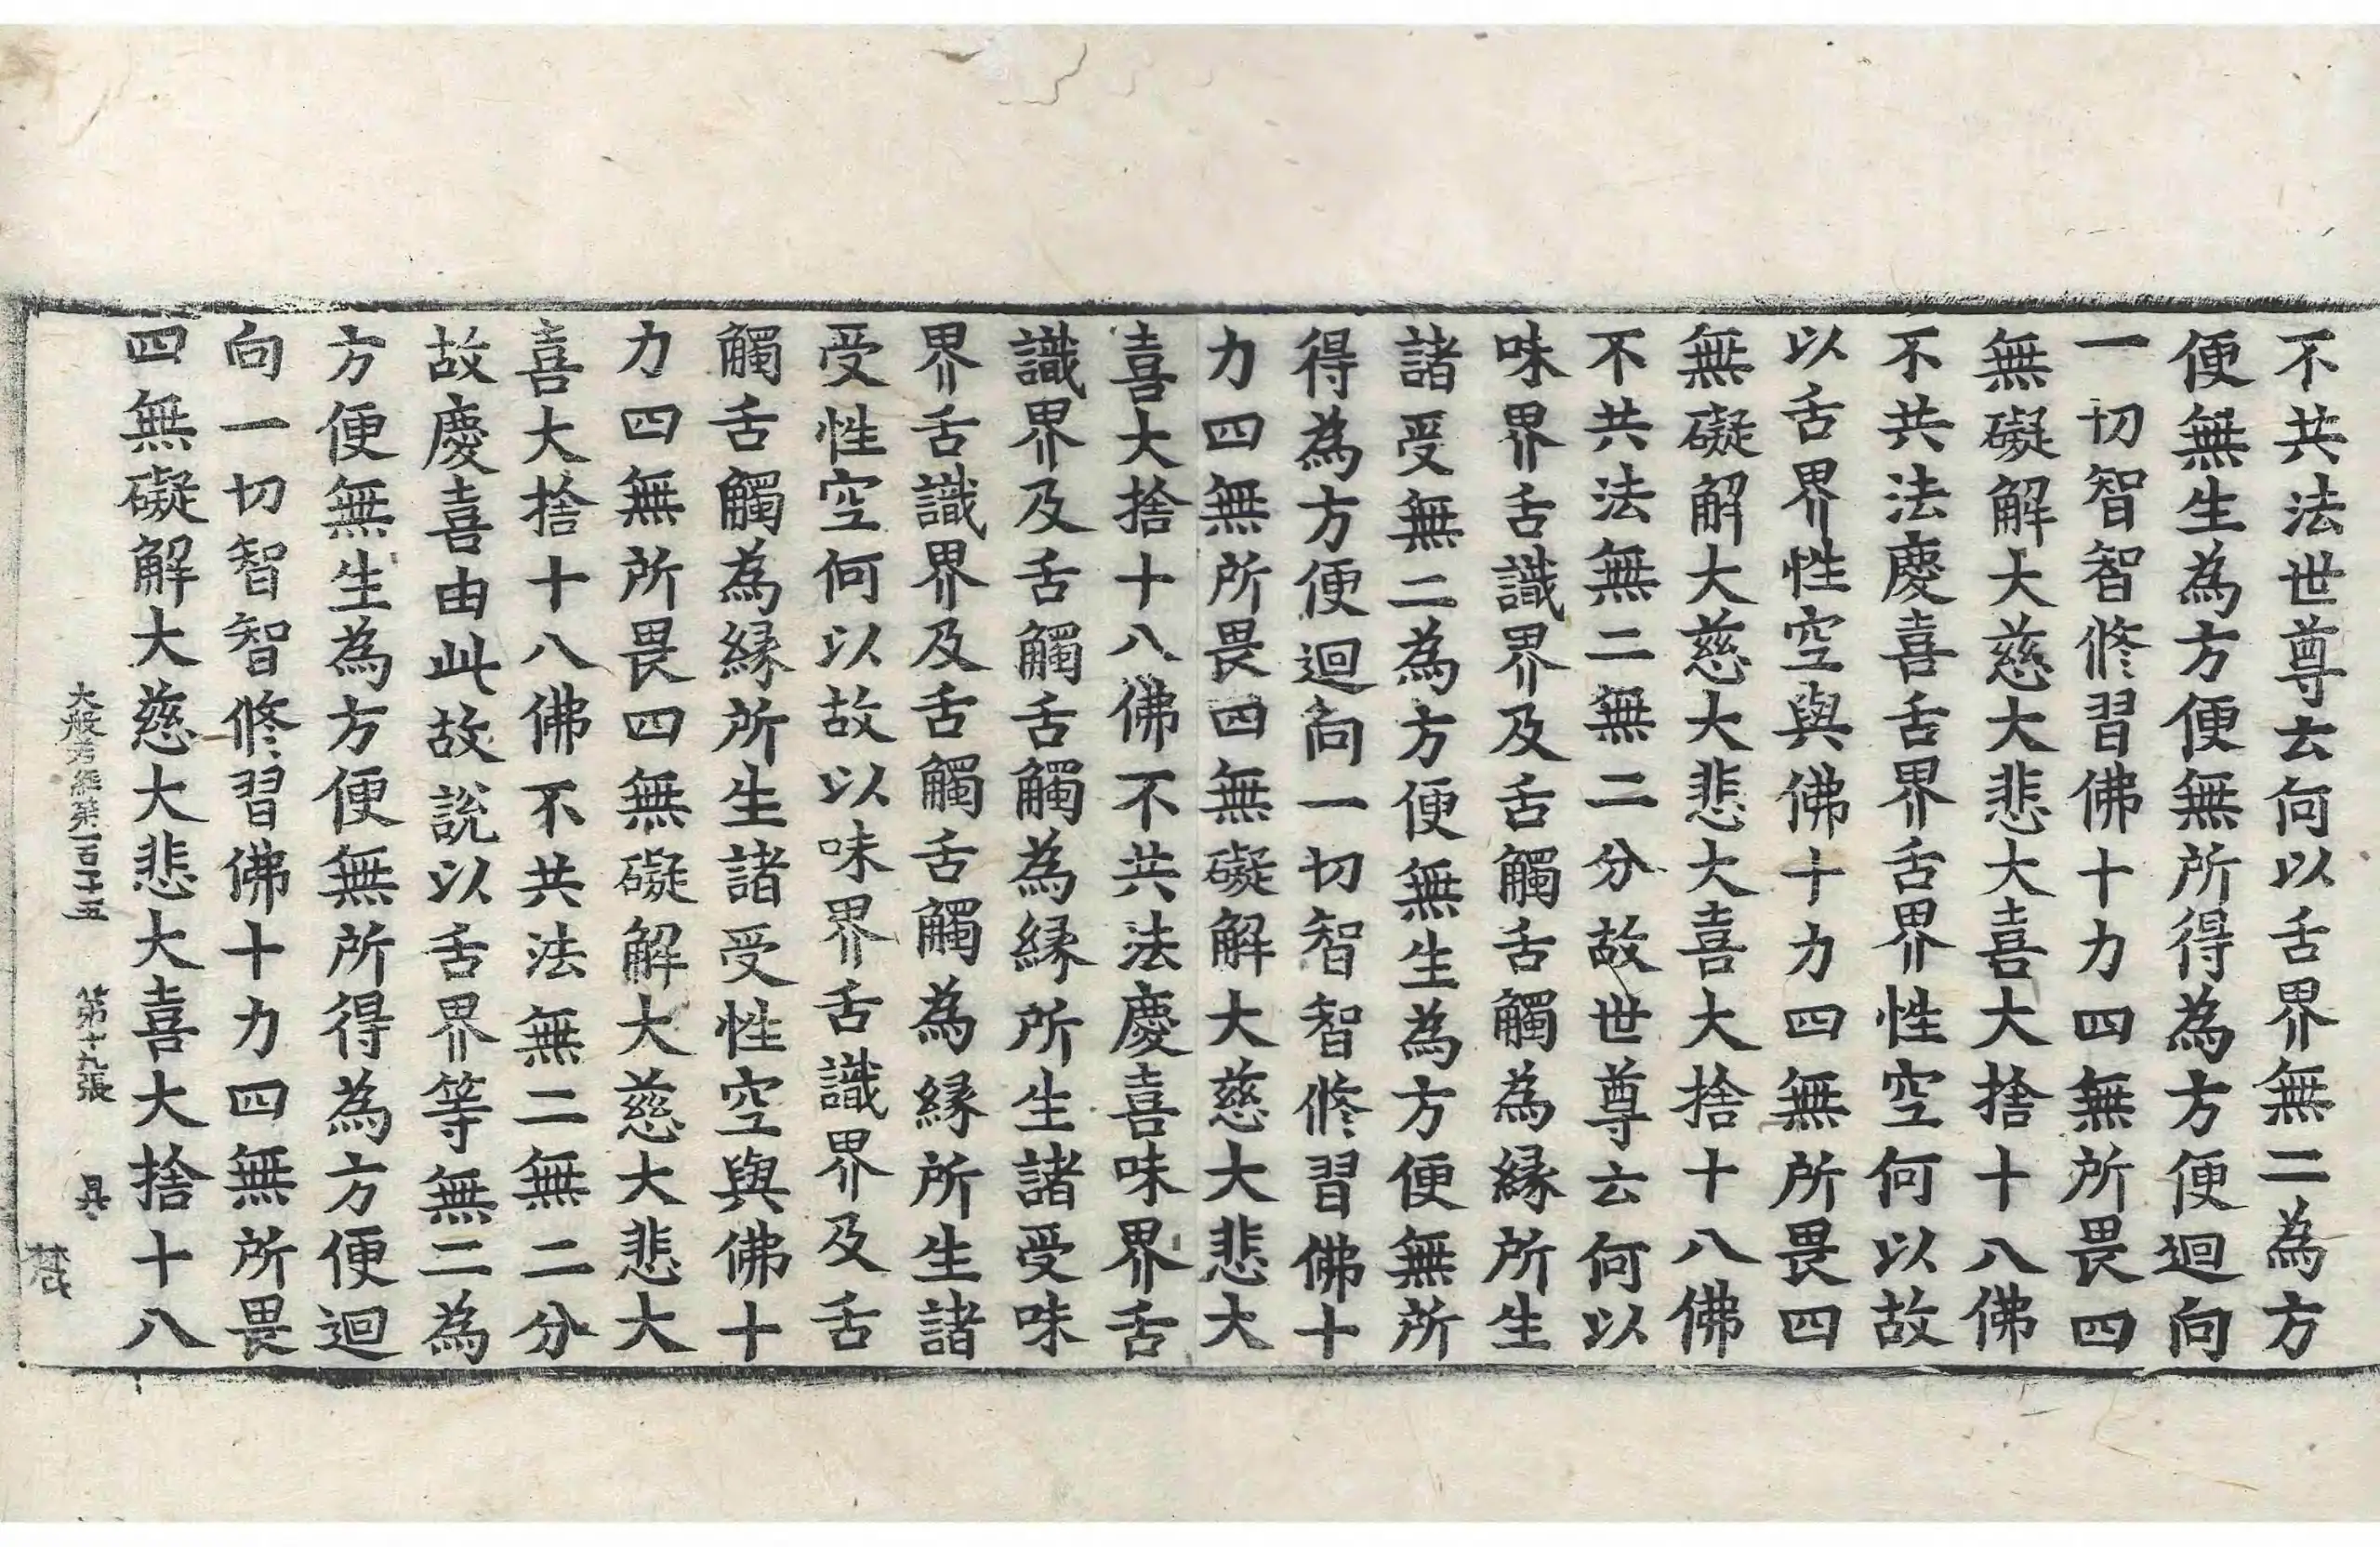 不共法世尊云何以舌界無二為方
便無生為方便無所得為方便迴向
一切智智修習佛十力四無所畏四
無礙解大慈大悲大喜大捨十八佛
不共法慶喜舌界舌界性空何以故
以舌界性空與佛十力四無所畏四
無礙解大慈大悲大喜大捨十八佛
不共法無二無二分故世尊云何以
味界舌識界及舌觸舌觸為緣所生
諸受無二為方便無生為方便無所
得為方便迴向一切智智修習佛十
力四無所畏四無礙解大慈大悲大
喜大捨十八佛不共法慶喜味界舌
識界及舌觸舌觸為緣所生諸受味
界舌識界及舌觸舌觸為緣所生諸
受性空何以故以味界舌識界及舌
觸舌觸為緣所生諸受性空與佛十
力四無所畏四無礙解大慈大悲大
喜大捨十八佛不共法無二無二分
故慶喜由此故說以舌界等無二為
方便無生為方便無所得為方便迴
向一切智智修習佛十力四無所畏
四無礙解大慈大悲大喜大捨十八
大般若經第一百二十五 第十九張